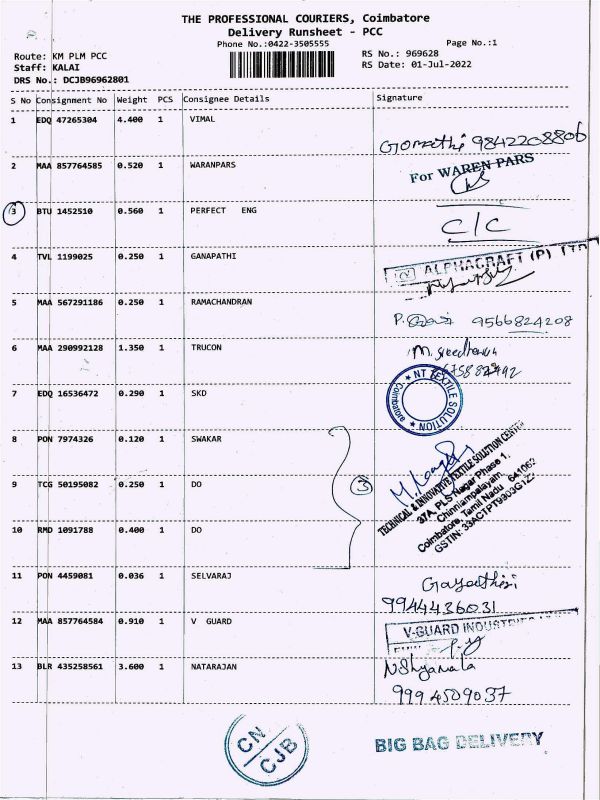 THE PROFESSIONAL COURIERS, Coimbatore
Delivery Runsheet - PCC
Phone No.:0422-3505555
Page No.:1
Route: KM PLM PCC
RS No.: 969628
Staff: KALAI
RS Date: 01-Jul-2022
DRS No.: DCJB96962801
S No Consignment No Weight PCS Consignee Details Signature
1 EDQ 47265304 4.400 1 VIMAL
Gomathi 9842208806
2 MAA 857764585 0.520 1 WARANPARS
For WAREN PARS
3 BTU 1452510 0.560 1 PERFECT ENG
C/C
4 TVL 1199025 0.250 1 GANAPATHI
ALPHACRAFT (P) LTD
5 MAA 567291186 0.250 1 RAMACHANDRAN
9566824208
6 MAA 290992128 1.350 1 TRUCON
M. Sreedharan
NT TEXTILE SOLUTION
Coimbatore
7 EDQ 16536472 0.290 1 SKD
8 PON 7974326 0.120 1 SWAKAR
3
TECHNICAL & INNOVATIVE TEXTILE SOLUTION CENTER
37A, PLS Nagar Phase 1,
Chinniampalayam,
Coimbatore, Tamil Nadu 641062
9 TCG 50195082 0.250 1 DO
10 RMD 1091788 0.400 1 DO
11 PON 4459081 0.036 1 SELVARAJ
Gayathiri
9944436031
12 MAA 857764584 0.910 1 V GUARD
V-GUARD INDUSTRIES
13 BLR 435258561 3.600 1 NATARAJAN
N Shyamala
9994509037
CN
CJB
BIG BAG DELIVERY